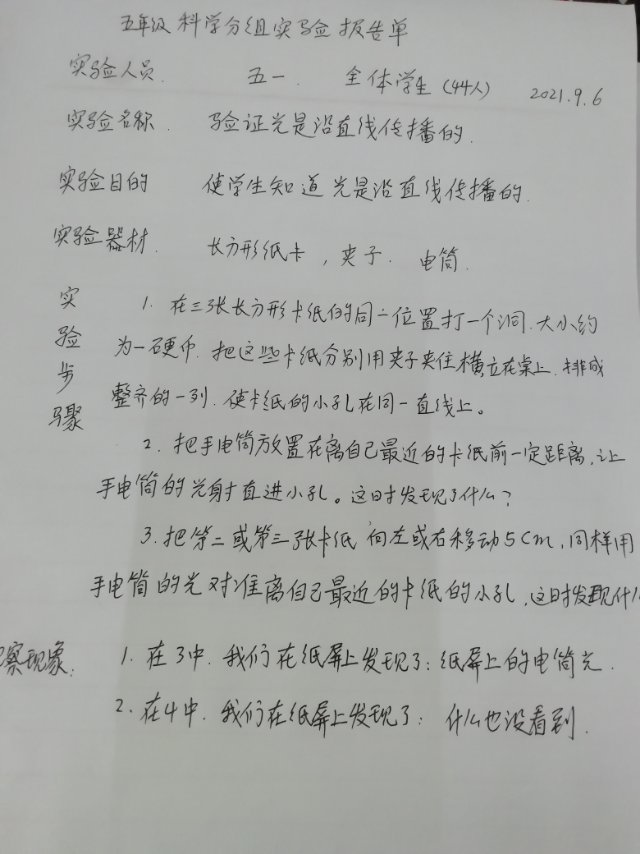 五年级科学分组实验报告单
实验人员. 五一. 全体学生(44人) 2021.9.6
实验名称. 验证光是沿直线传播的.
实验目的 使学生知道光是沿直线传播的.
实验器材. 长方形纸卡, 夹子. 电筒.
实验步骤
1. 在三张长方形卡纸的同一位置打一个洞.大小约
为一硬币.把这些卡纸分别用夹子夹住横立在桌上.排成
整齐的一列.使卡纸的小孔在同一直线上。
2. 把手电筒放置在离自己最近的卡纸前一定距离,让
手电筒的光射直进小孔。这时发现了什么?
3. 把第二或第三张卡纸向左或右移动5cm,同样用
手电筒的光对准离自己最近的卡纸的小孔,这时发现什
察现象: 1. 在3中.我们在纸屏上发现了:纸屏上的电筒光.
2. 在4中.我们在纸屏上发现了: 什么也没看到.